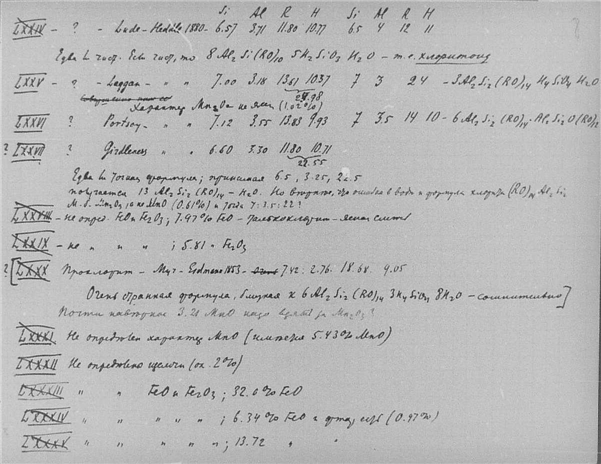 Si Al R H Si Al R H
LXXIV - ? - Lude - Heddle 1880 - 6.57 3.71 11.80 10.77 6.5 4 12 11
Едва L чист. Если чист, то 8 Al2 Si (RO)10 5 H2 SiO3 H2O - т.е. хлоритоид
LXXV - ? - Laggan - " " 7.00 3.18 13.61 10.37 7 3 24 - 3 Al2 Si2 (RO)14 H4 SiO4 H2O
23.98
Характер Mn2O3 не ясен (1.02%)
LXXVI ? Portsoy - " " 7.12 3.55 13.83 9.93 7 3.5 14 10 - 6 Al2 Si2 (RO)14 · Al2 Si2O (RO)12
? LXXVII ? Girdleness " " 6.60 3.30 11.80 10.71
22.55
Едва L точная формула; принимая 6.5, 3.25, 22.5
получается 13 Al2 Si2 (RO)14 - H2O. Но вероятно, что ошибка в воде и формула хлорита (RO)14 Al2 Si2
М.б. Mn2O3, а не MnO (0.61%) и тогда 7:3.5:22?
LXXVIII - не опред. FeO и Fe2O3; 7.97% FeO - - ясная смесь
LXXIX - не " " " ; 5.81 " Fe2O3
? [LXXX Прохлорит - - Erdmann 1853 - 7.42 · 2.76 · 18.68 · 9.05
Очень странная формула, близкая к 6 Al2 Si2 (RO)14 3 H4 SiO4 8 H2O - сомнительно]
3.21 MnO надо за Mn2O3?
LXXXI Не определен характер MnO (имеется 5.43% MnO)
LXXXII Не определено щелочи (ок. 2%)
LXXXIII " " FeO и Fe2O3; 32.0% FeO
LXXXIV " " " " ; 6.34% FeO и (0.97%)
LXXXV " " " " ; 13.72 " "